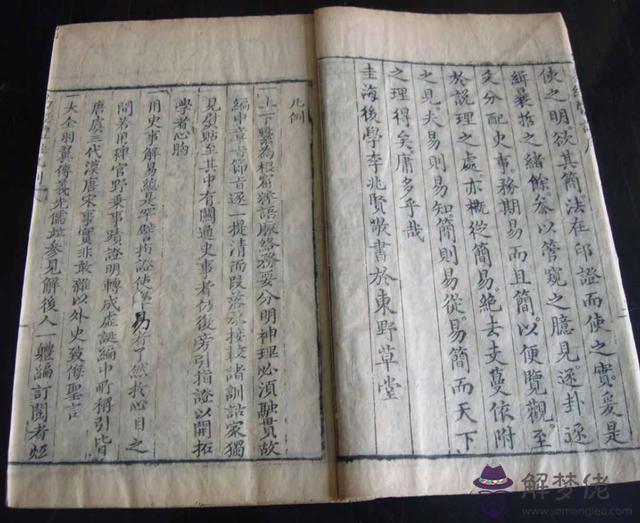 使之明欲其簡法在印證而使之實爰是
緝暴括之緒餘參以管窺之臆見逐卦逐
爻分配史事務期易而且簡以便覽觀至
於說理之處亦概從簡易絕去支蔓依附
之見夫易則易知簡則易從易簡而天下
之理得矣庸多乎哉
圭海後學李兆賢敬書於東野草堂
凡例
一上下繫為根窟辭語脈絡務要分明神理必須融貫故
編中章旨節旨逐一提清而段落承接較諸訓詁家獨
見慰貼至其中有關通史事者仍復旁引指證以開拓
學者心胸
一用史事解易總是罕譬指證使學易者了然於心目之
間若用稗官野乘事蹟證明轉成虛誕編中所稱引皆
唐虞三代漢唐宋事實非敢雜以外史致侮聖言
一大全羽翼傳義先儒
參見解後人一軆編訂閱者
解梦佬
www.jiemengleo.com